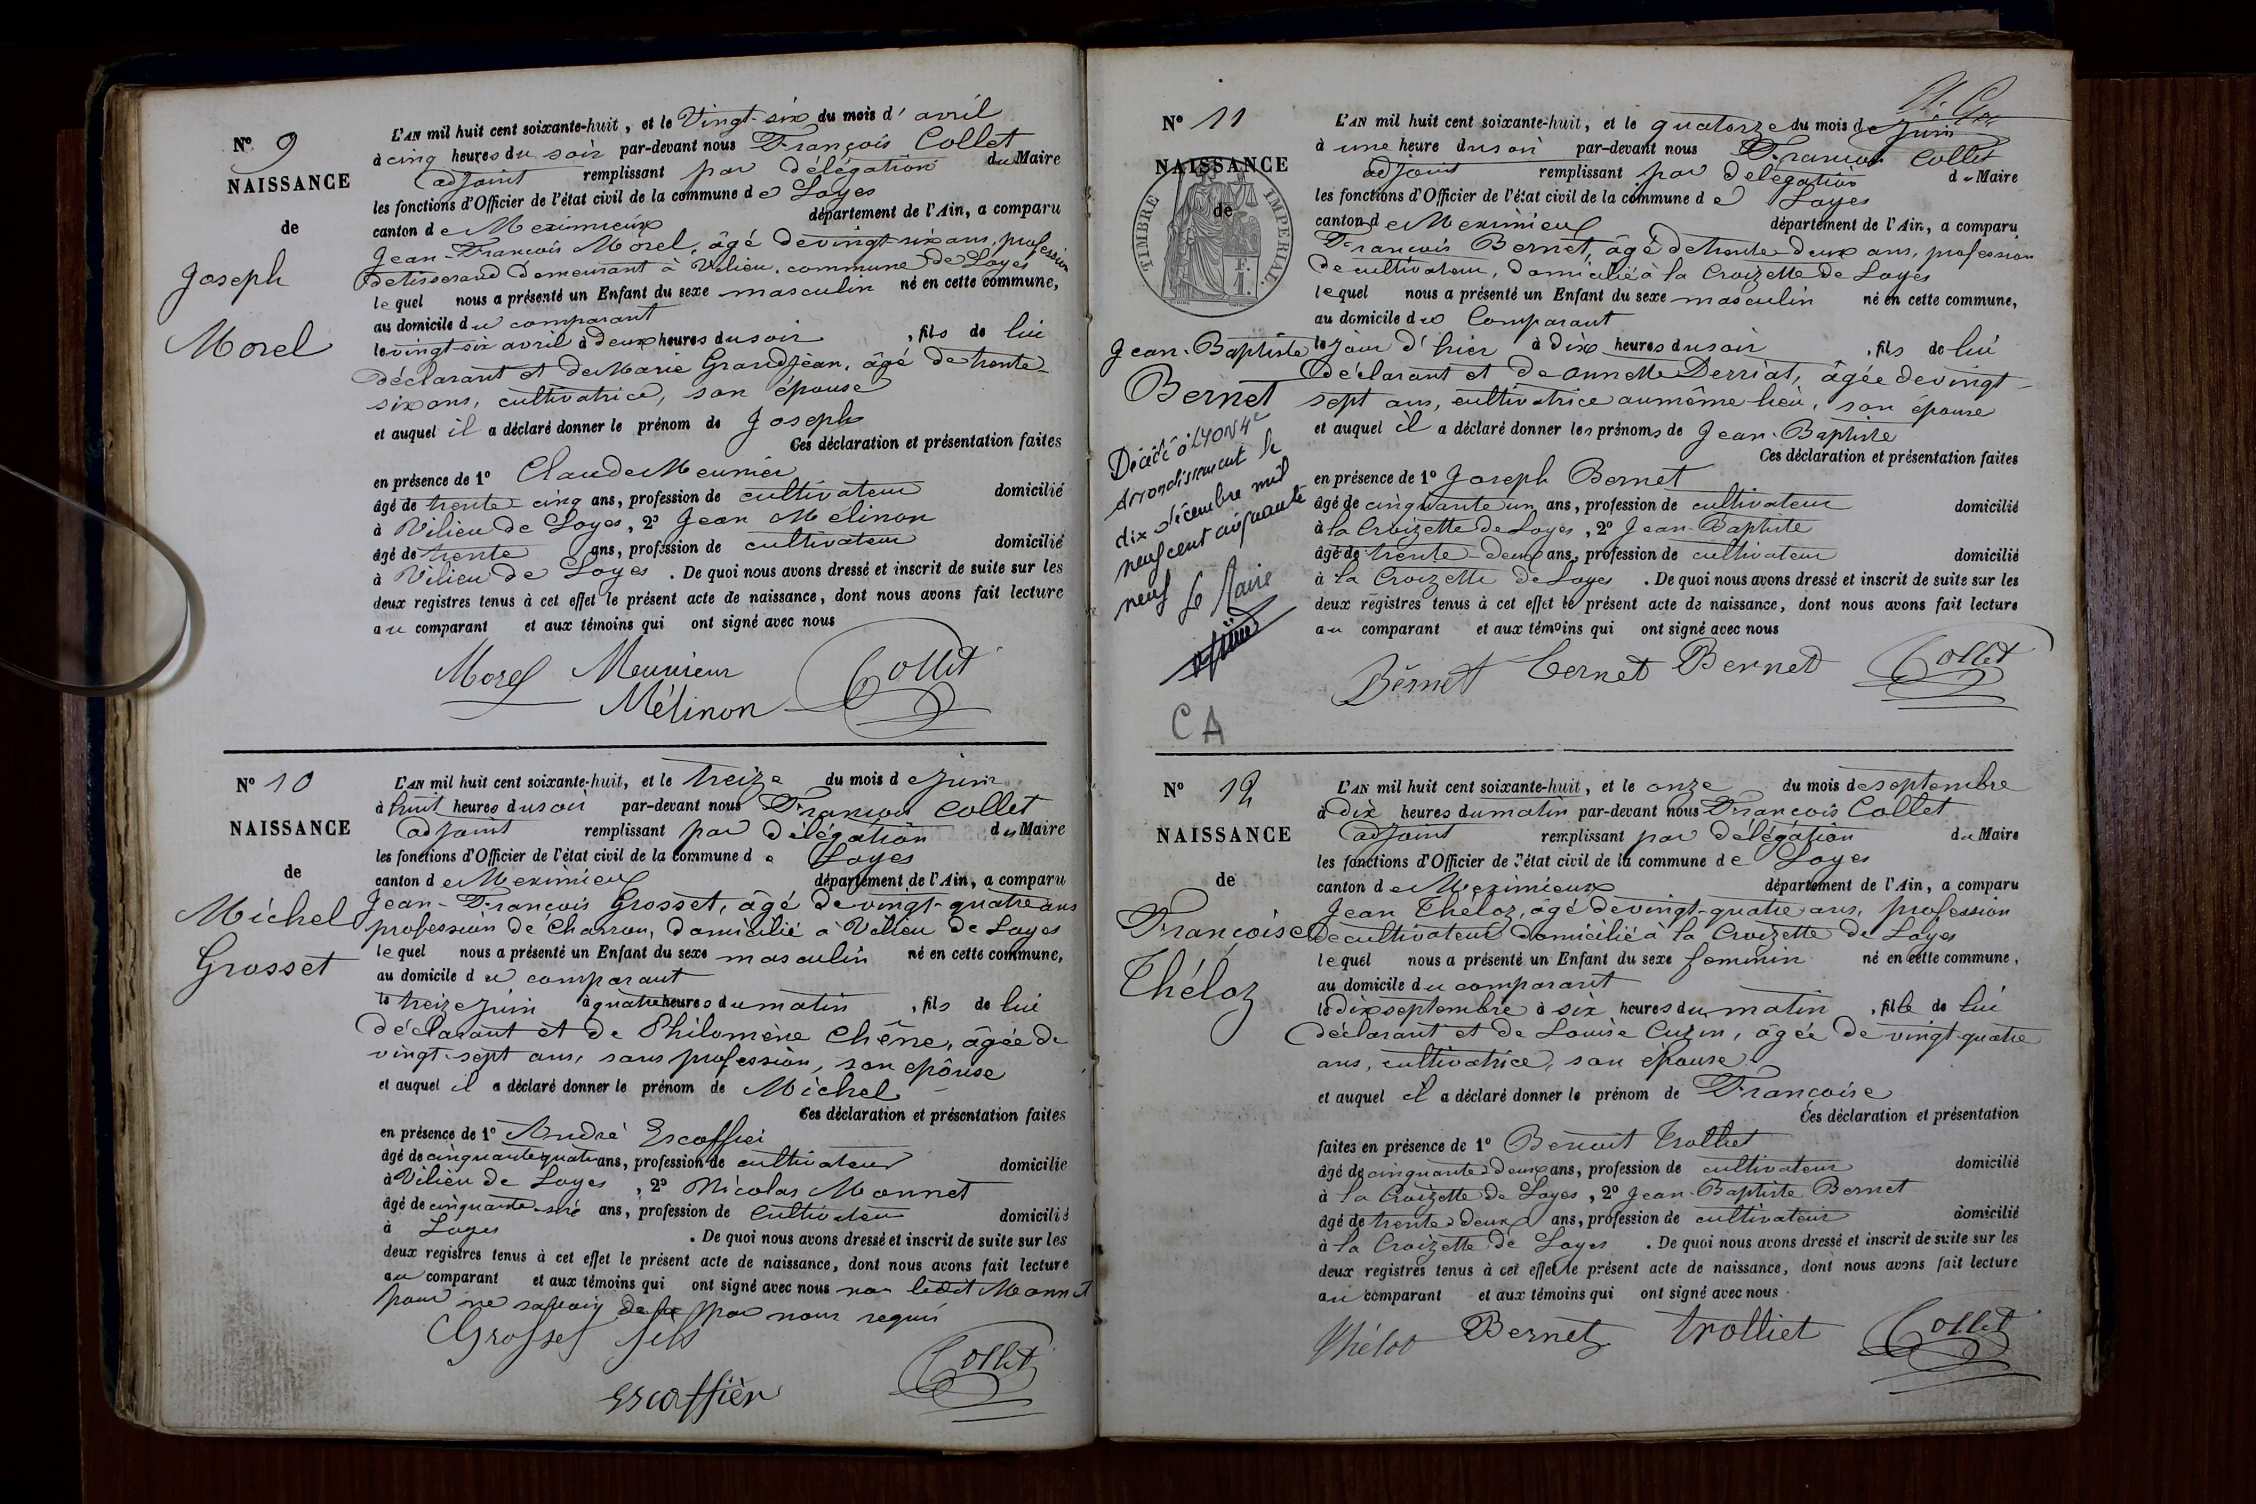 Nº 9
NAISSANCE
de
Joseph
Morel
L'AN mil huit cent soixante-huit, et le Vingt-six du mois d'avril
à cinq heures du soir par-devant nous François Collet
adjoint remplissant par délégation du Maire
les fonctions d'Officier de l'état civil de la commune de Loyes
canton de Meximieux département de l'Ain, a comparu
Jean-François Morel, âgé de vingt-six ans, profession
de tisserand demeurant à Vilieu, commune de Loyes
lequel nous a présenté un Enfant du sexe masculin né en cette commune,
au domicile du comparant
le vingt-six avril à deux heures du soir, fils de lui
déclarant et de Marie Grandjean, âgé de trente-
six ans, cultivatrice, son épouse
et auquel il a déclaré donner le prénom de Joseph
Ces déclaration et présentation faites
en présence de 1º Claude Meunier
âgé de trente cinq ans, profession de cultivateur domicilié
à Vilieu de Loyes, 2º Jean Mélinon
âgé de trente ans, profession de cultivateur domicilié
à Vilieu de Loyes. De quoi nous avons dressé et inscrit de suite sur les
deux registres tenus à cet effet le présent acte de naissance, dont nous avons fait lecture
au comparant et aux témoins qui ont signé avec nous
Morel Meunieur Collet
Mélinon
Nº 10
NAISSANCE
de
Michel
Grosset
L'AN mil huit cent soixante-huit, et le treize du mois de juin
à huit heures du soir par-devant nous François Collet
adjoint remplissant par délégation du Maire
les fonctions d'Officier de l'état civil de la commune de Loyes
canton de Meximieux département de l'Ain, a comparu
Jean-François Grosset, âgé de vingt-quatre ans
profession de Charron, domicilié à Vilieu de Loyes
lequel nous a présenté un Enfant du sexe masculin né en cette commune,
au domicile du comparant
le treize juin à quatre heures du matin, fils de lui
déclarant et de Philomène Chêne, âgée de
vingt-sept ans, sans profession, son épouse
et auquel il a déclaré donner le prénom de Michel
Ces déclaration et présentation faites
en présence de 1º André Escoffier
âgé de cinquante quatre ans, profession de cultivateur domicilié
à Vilieu de Loyes, 2º Nicolas Monnet
âgé de cinquante-six ans, profession de cultivateur domicilié
à Loyes. De quoi nous avons dressé et inscrit de suite sur les
deux registres tenus à cet effet le présent acte de naissance, dont nous avons fait lecture
au comparant et aux témoins qui ont signé avec nous non ledit Monnet
pour ne savoir de ce par nous requis
Grosset fils Collet
Escoffièr
Nº 11
NAISSANCE
de
TIMBRE IMPÉRIAL
Jean-Baptiste
Bernet
Décédé à LYON 4e
Arrondissement le
dix décembre mil
neuf cent cinquante
neuf Le Maire
CA
L'AN mil huit cent soixante-huit, et le quatorze du mois de juin
à une heure du soir par-devant nous François Collet
adjoint remplissant par délégation du Maire
les fonctions d'Officier de l'état civil de la commune de Loyes
canton de Meximieux département de l'Ain, a comparu
François Bernet, âgé de trente deux ans, profession
de cultivateur, domicilié à la Croizette de Loyes
lequel nous a présenté un Enfant du sexe masculin né en cette commune,
au domicile du Comparant
le jour d'hier à dix heures du soir, fils de lui
déclarant et de Annette Derriat, âgée de vingt-
sept ans, cultivatrice au même lieu, son épouse
et auquel il a déclaré donner les prénoms de Jean-Baptiste
Ces déclaration et présentation faites
en présence de 1º Joseph Bernet
âgé de cinquante un ans, profession de cultivateur domicilié
à la Croizette de Loyes, 2º Jean-Baptiste
âgé de trente-deux ans, profession de cultivateur domicilié
à la Croizette de Loyes. De quoi nous avons dressé et inscrit de suite sur les
deux registres tenus à cet effet le présent acte de naissance, dont nous avons fait lecture
au comparant et aux témoins qui ont signé avec nous
Bernet Bernet Bernet Collet
Nº 12
NAISSANCE
de
Françoise
Théloz
L'AN mil huit cent soixante-huit, et le onze du mois de septembre
à dix heures du matin par-devant nous François Collet
adjoint remplissant par délégation du Maire
les fonctions d'Officier de l'état civil de la commune de Loyes
canton de Meximieux département de l'Ain, a comparu
Jean Théloz, âgé de vingt-quatre ans, profession
de cultivateur domicilié à la Croizette de Loyes
lequel nous a présenté un Enfant du sexe féminin né en cette commune,
au domicile du comparant
le dix septembre à six heures du matin, fille de lui
déclarant et de Louise Cuzin, âgée de vingt-quatre
ans, cultivatrice, son épouse
et auquel il a déclaré donner le prénom de Françoise
Ces déclaration et présentation
faites en présence de 1º Benoit Trolliet
âgé de cinquante deux ans, profession de cultivateur domicilié
à la Croizette de Loyes, 2º Jean-Baptiste Bernet
âgé de trente-deux ans, profession de cultivateur domicilié
à la Croizette de Loyes. De quoi nous avons dressé et inscrit de suite sur les
deux registres tenus à cet effet le présent acte de naissance, dont nous avons fait lecture
au comparant et aux témoins qui ont signé avec nous
Théloz Bernet trolliet Collet